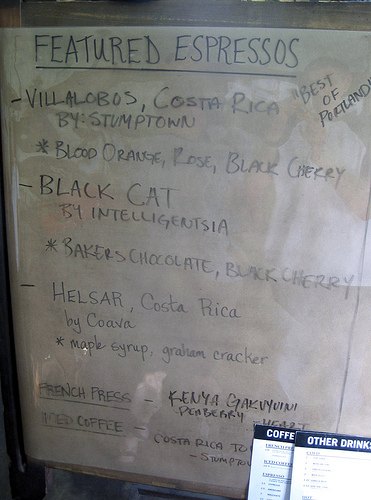 FEATURED ESPRESSOS
- VILLALOBOS, COSTA RICA
BY: STUMPTOWN
"BEST
OF
PORTLAND"
* BLOOD ORANGE, ROSE, BLACK CHERRY
- BLACK CAT
BY INTELLIGENTSIA
* BAKERS CHOCOLATE, BLACK CHERRY
- HELSAR, Costa Rica
by Coava
* maple syrup, graham cracker
FRENCH PRESS - KENYA GAKUYUINI
PEABERRY - HEART
ICED COFFEE -
COSTA RICA
- STUMPTOW
COFFE
OTHER DRINK